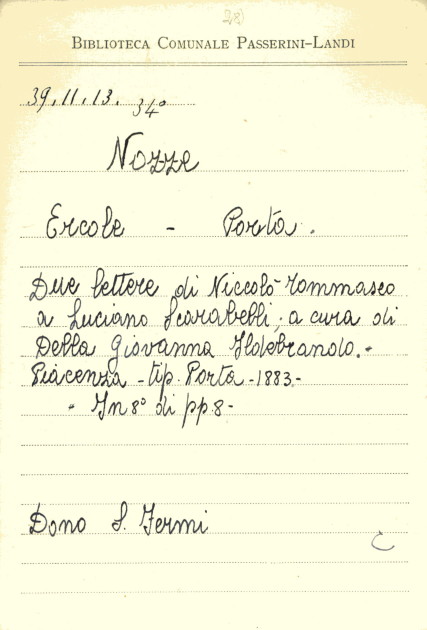 BIBLIOTECA COMUNALE PASSERINI-LANDI
39.11.13. 34°
Nozze
Ercole - Porta.
Due lettere di Niccolò Tommaseo
a Luciano Scarabelli; a cura di
Della Giovanna Ildebrando.-
Piacenza - tip. Porta - 1883.-
- In 8° di pp. 8 -
Dono S. Fermi